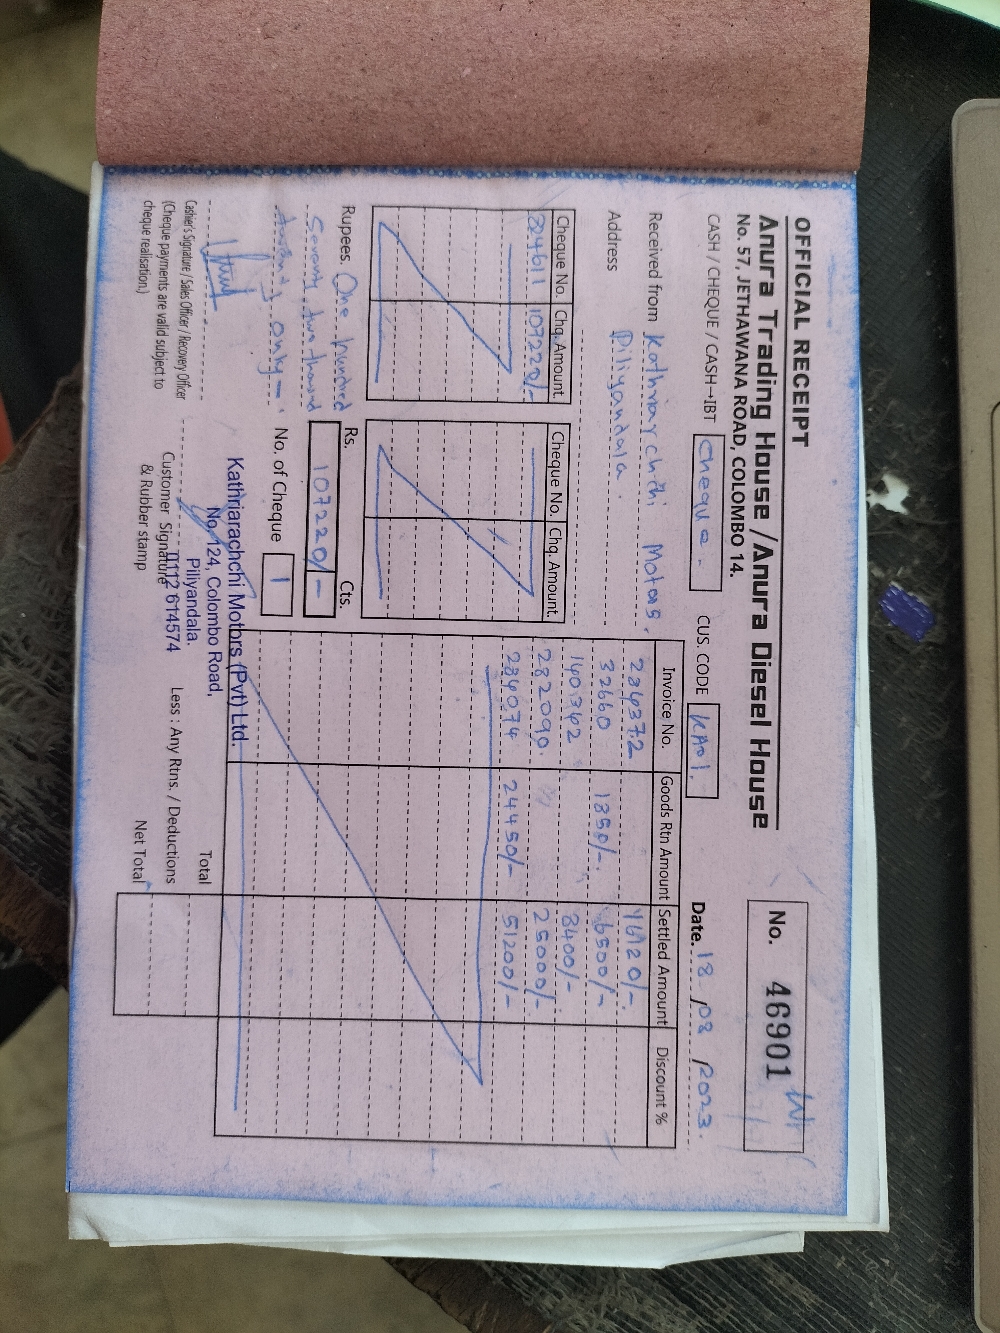 OFFICIAL RECEIPT
Anura Trading House / Anura Diesel House
No. 57, JETHAWANA ROAD, COLOMBO 14.
No. 46901
CASH / CHEQUE / CASH→IBT Cheque - CUS. CODE KA01. Date. 18 / 08 / 2023.
Received from Kathriarchchi Motors.
Address Piliyandala.
Cheque No. Chq. Amount.
894611 107220/-
Cheque No. Chq. Amount.
Invoice No. Goods Rtn Amount Settled Amount Discount %
284372 16120/-
32660 1850/- 6500/-
140342 8400/-
282090. 25000/-
284074 24450/- 51200/-
Rupees. One hundred
Seventy two thousand
twenty only -
Rs. Cts.
107220/-
No. of Cheque 1
Cashier's Signature / Sales Officer / Recovery Officer
(Cheque payments are valid subject to
cheque realisation.)
Kathriarachchi Motors (Pvt) Ltd.
No. 124, Colombo Road,
Piliyandala.
0112 614574
Customer Signature
& Rubber stamp
Total
Less : Any Rtns. / Deductions
Net Total